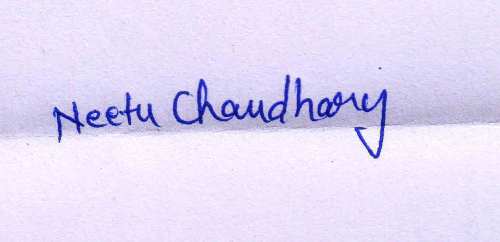 Neetu Chaudhary